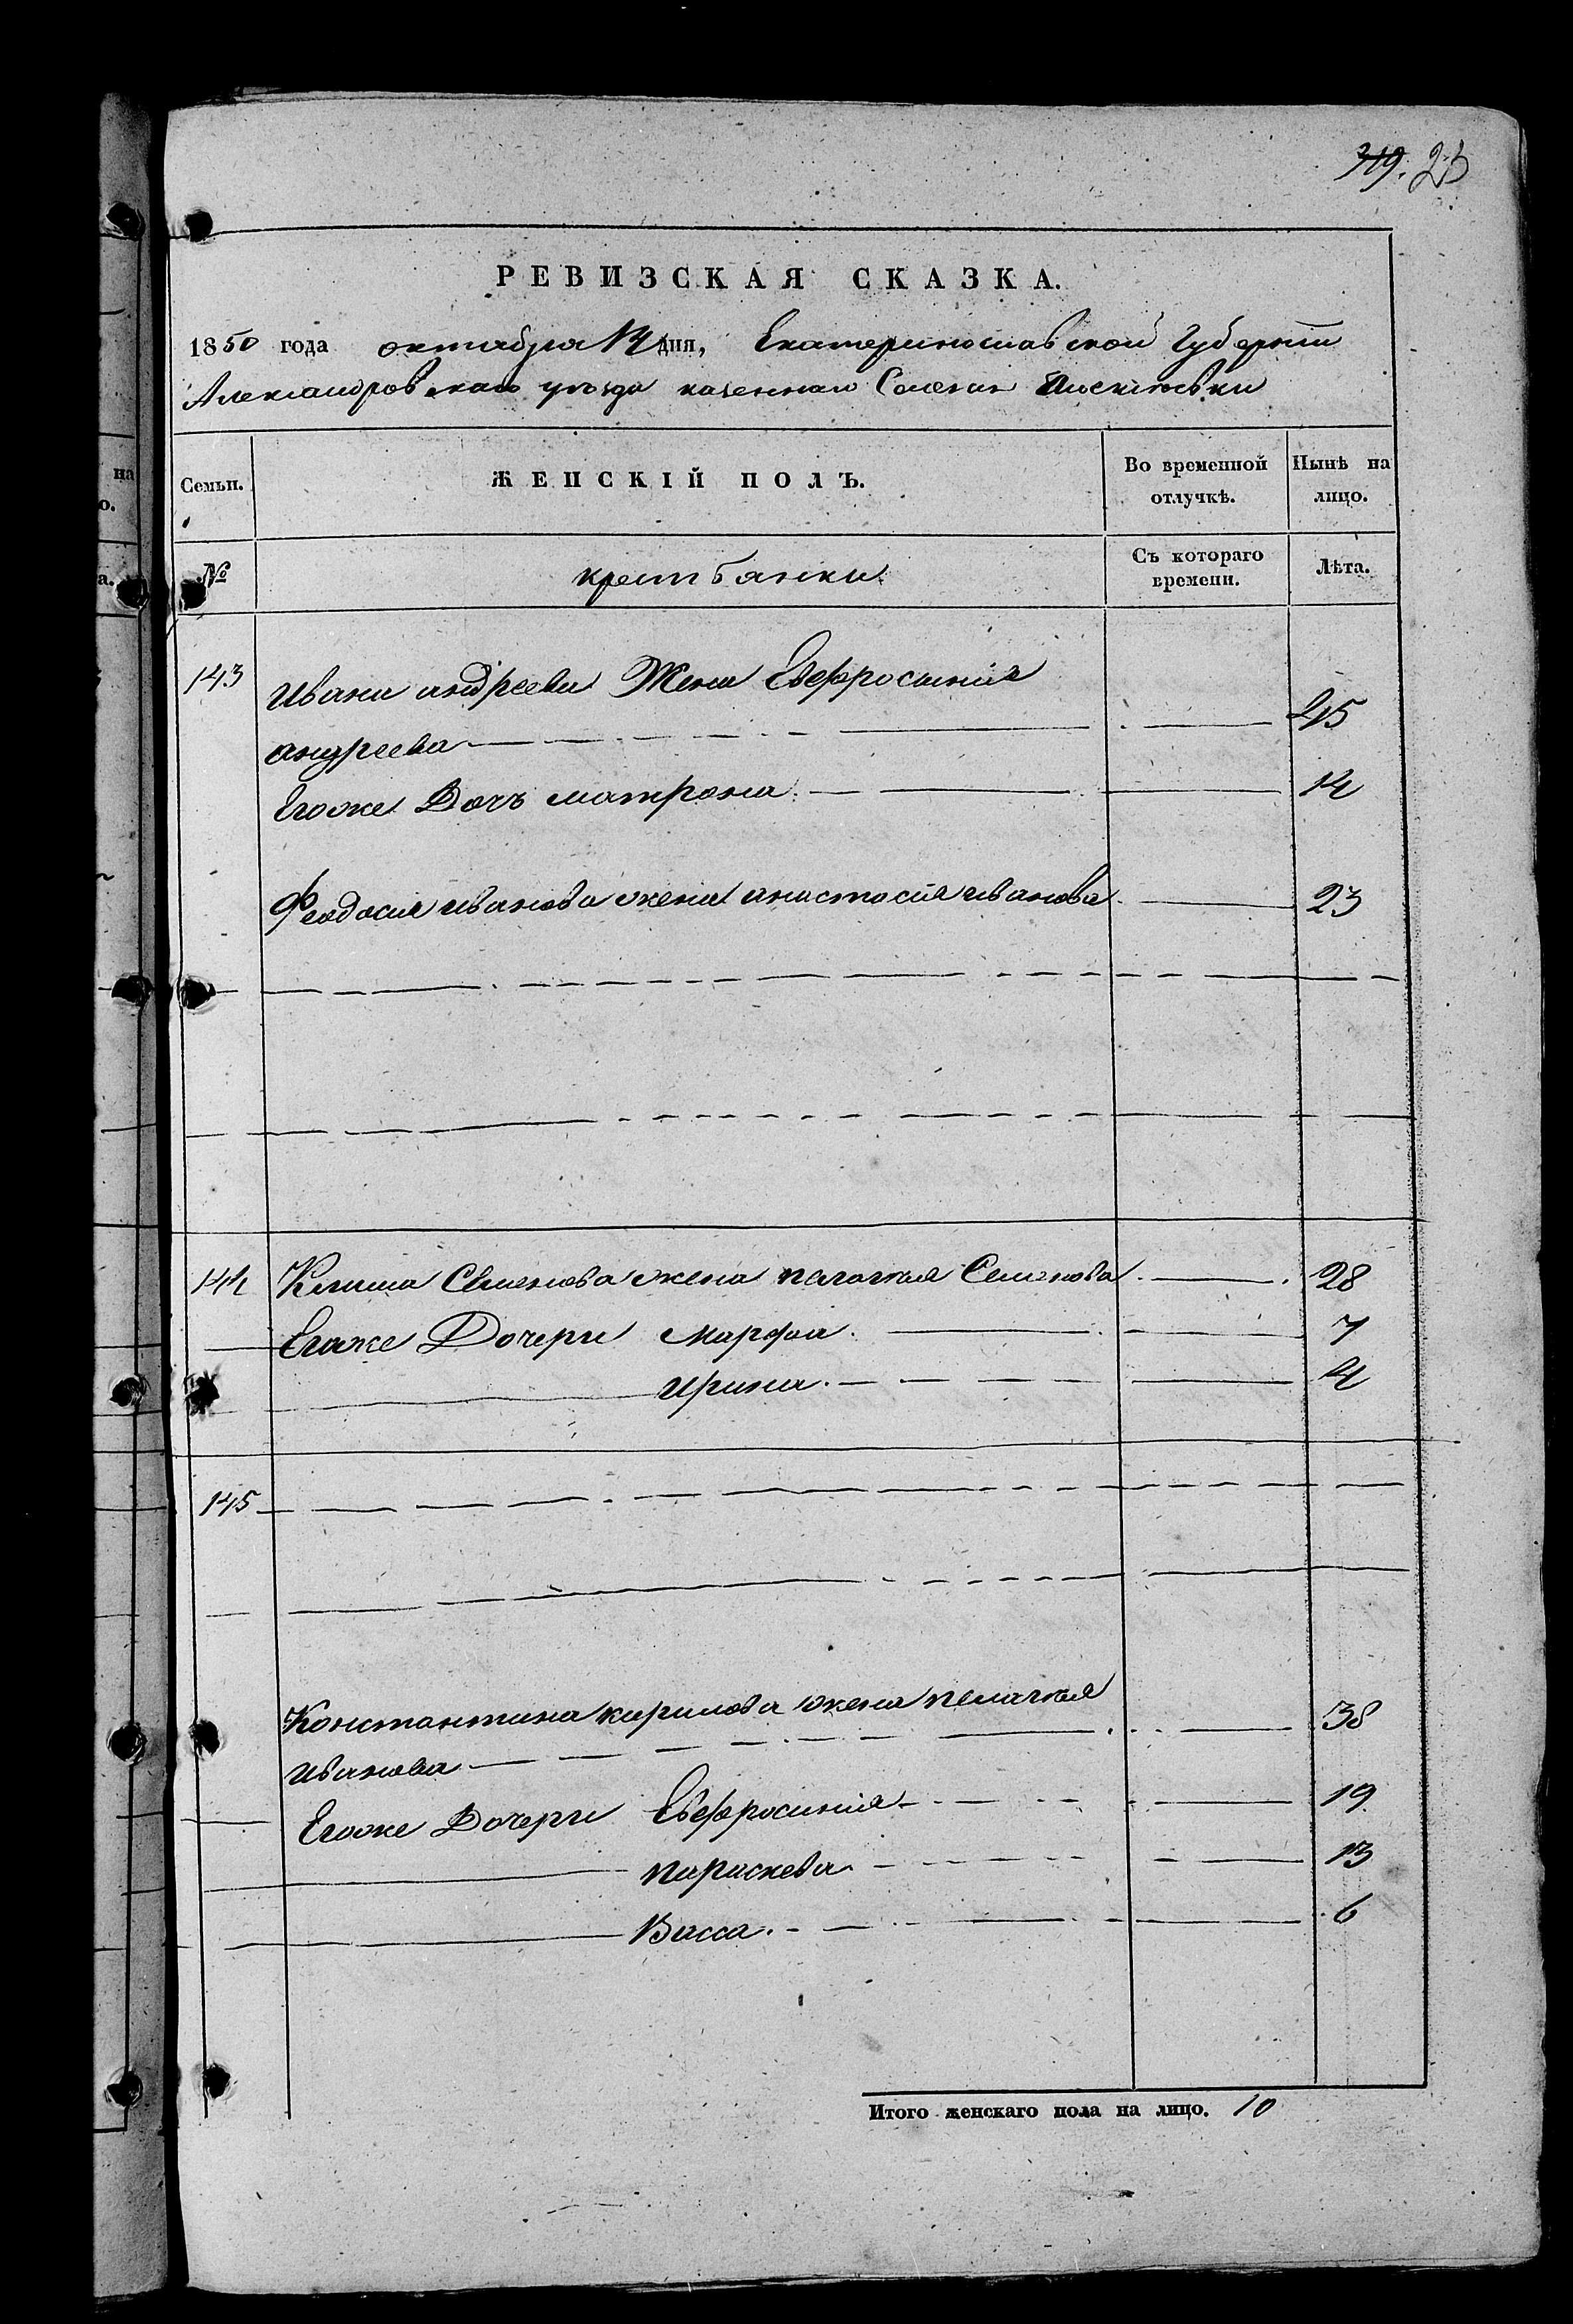 319. 23
РЕВИЗСКАЯ СКАЗКА.
1850 года октабра 14 дня, Екатеринославской Губернии
Александровскаго уезда казеннаго Селения
Семьи. ЖЕНСКІЙ ПОЛЪ. Во временной отлучкѣ. Нынѣ на лицо.
№ крестьянки Съ котораго времени. Лѣта.
143 Ивана андреева Жена Евфросиния
андреева 45
Егоже Дочь матрона 14
Феодосия иванова жена анастасия иванова 23
144 Клима Семенова жена пелагия Семенова 28
Егоже Дочери марфа 7
ирина 4
145
Константина кирилова жена пелагия
иванова 38
Егоже Дочери Евфросиния 19
параскева 13
Васса 6
Итого женскаго пола на лицо. 10
на
о.
а.